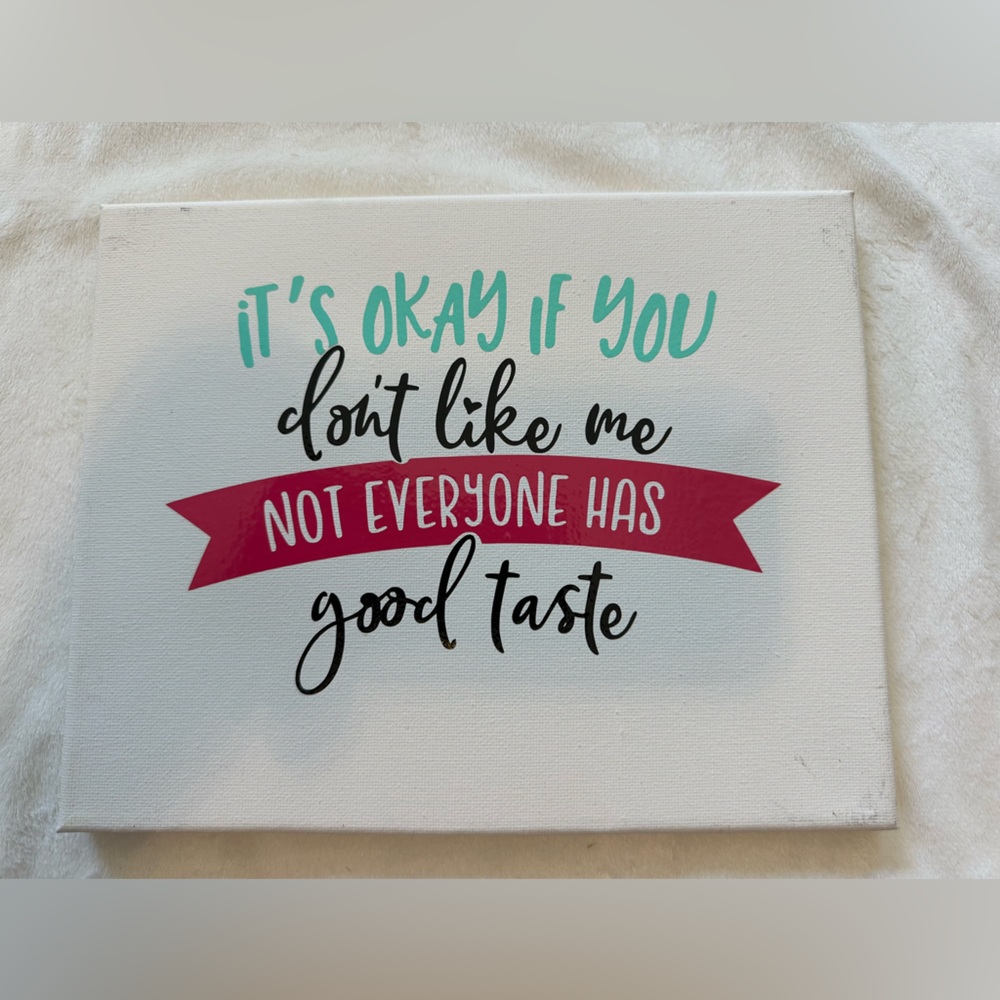 iT'S OKAY IF YOU
don't like me
NOT EVERYONE HAS
good taste